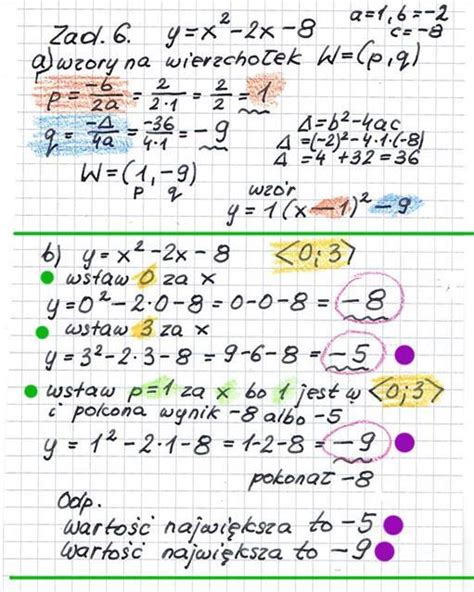 Zad. 6. y=x²-2x-8 a=1, b=-2
c=-8
a) wzory na wierzchołek W=(p,q)
p = -b/2a = 2/2·1 = 2/2 = 1
q = -Δ/4a = -36/4·1 = -9
Δ=b²-4ac
Δ=(-2)²-4·1·(-8)
Δ=4+32=36
W=(1,-9)
p q
wzór
y=1(x-1)²-9
b) y=x²-2x-8 <0;3>
wstaw 0 za x
y=0²-2·0-8=0-0-8=-8
wstaw 3 za x
y=3²-2·3-8=9-6-8=-5
wstaw p=1 za x bo 1 jest w <0;3>
i pokona wynik -8 albo -5
y=1²-2·1-8=1-2-8=-9
pokonał -8
Odp.
wartość największa to -5
wartość największa to -9